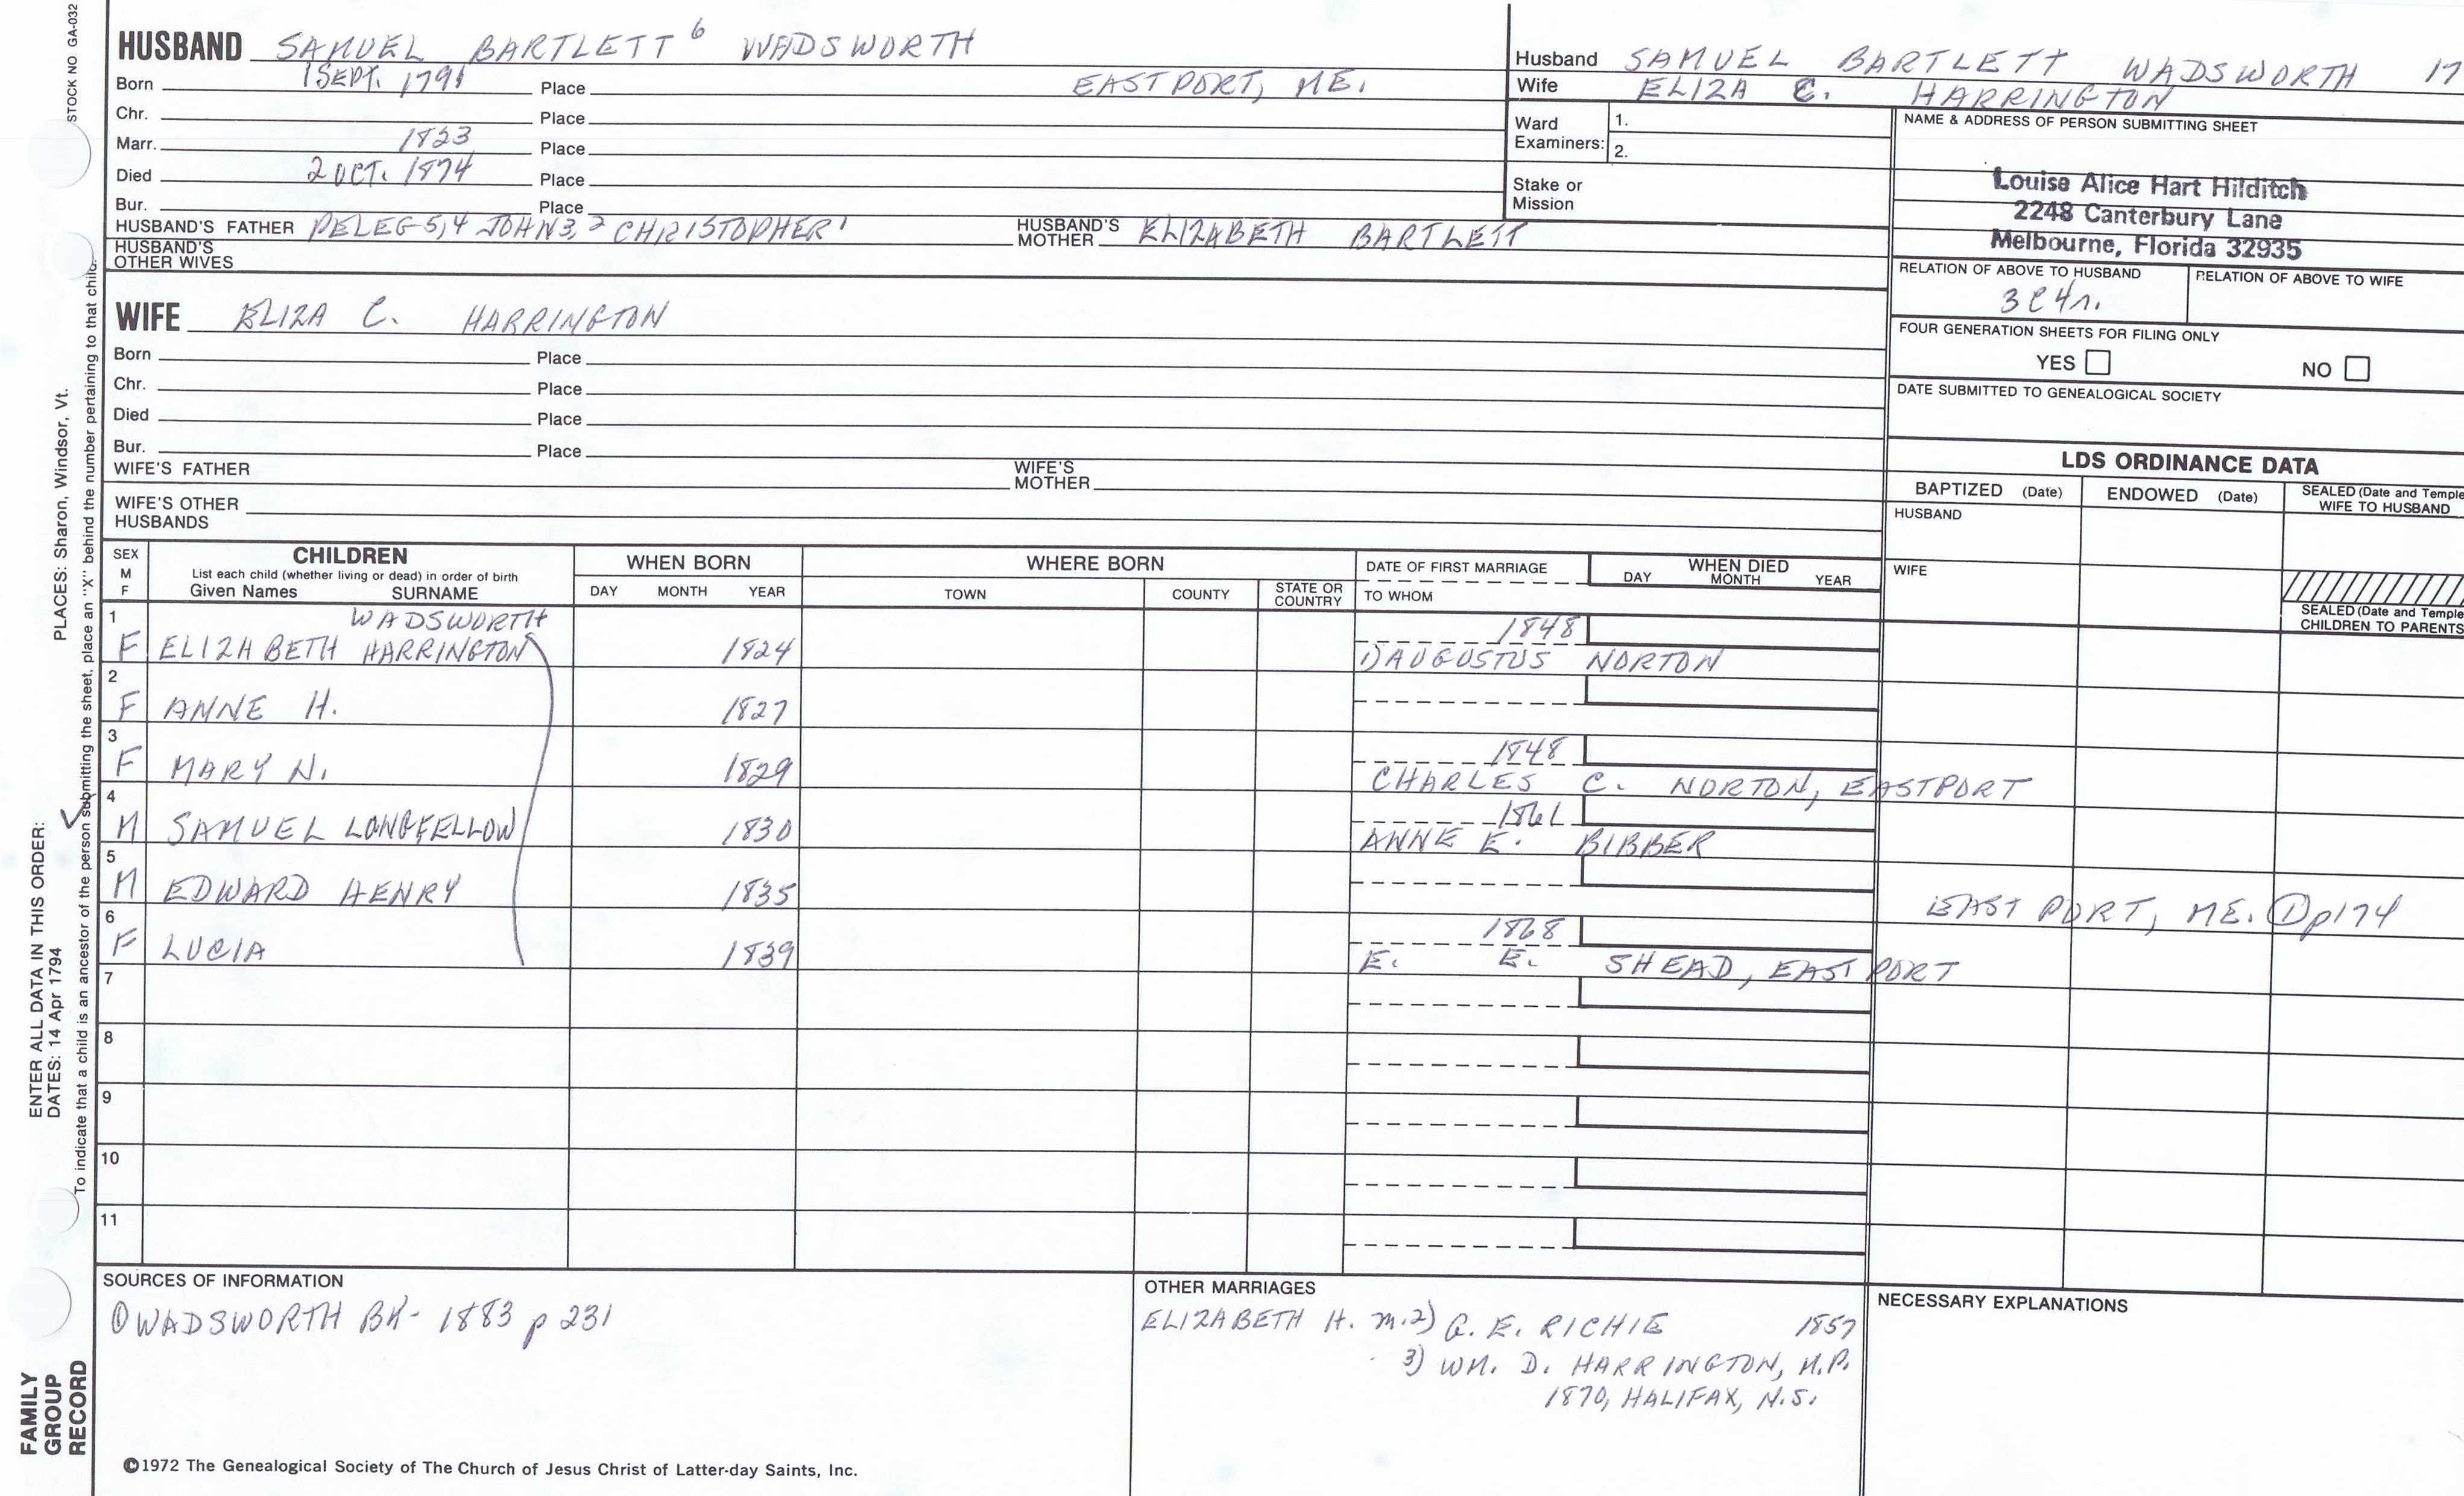 STOCK NO. GA-032
HUSBAND SAMUEL BARTLETT 6 WADSWORTH
Born 1 SEPT. 1791 Place EASTPORT, ME.
Chr. Place
Marr. 1823 Place
Died 2 OCT. 1874 Place
Bur. Place
HUSBAND'S FATHER PELEG 5,4 JOHN 3, 2 CHRISTOPHER 1 HUSBAND'S MOTHER ELIZABETH BARTLETT
HUSBAND'S OTHER WIVES
WIFE ELIZA C. HARRINGTON
Born Place
Chr. Place
Died Place
Bur. Place
WIFE'S FATHER WIFE'S MOTHER
WIFE'S OTHER HUSBANDS
Husband SAMUEL BARTLETT WADSWORTH 17
Wife ELIZA C. HARRINGTON
Ward Examiners: 1.
2.
Stake or Mission
NAME & ADDRESS OF PERSON SUBMITTING SHEET
Louise Alice Hart Hilditch
2248 Canterbury Lane
Melbourne, Florida 32935
RELATION OF ABOVE TO HUSBAND RELATION OF ABOVE TO WIFE
3C4r.
FOUR GENERATION SHEETS FOR FILING ONLY
YES NO
DATE SUBMITTED TO GENEALOGICAL SOCIETY
LDS ORDINANCE DATA
BAPTIZED (Date) ENDOWED (Date) SEALED (Date and Temple
WIFE TO HUSBAND
HUSBAND
WIFE
SEALED (Date and Temple
CHILDREN TO PARENTS
SEX M F CHILDREN WHEN BORN WHERE BORN DATE OF FIRST MARRIAGE WHEN DIED
List each child (whether living or dead) in order of birth
Given Names SURNAME DAY MONTH YEAR TOWN COUNTY STATE OR COUNTRY TO WHOM DAY MONTH YEAR
WADSWORTH
1 F ELIZABETH HARRINGTON 1824 1848
1) AUGUSTUS NORTON
2 F ANNE H. 1827
3 F MARY N. 1829 1848
CHARLES C. NORTON, EASTPORT
4 M SAMUEL LONGFELLOW 1830 1861
ANNE E. BIBBER
5 M EDWARD HENRY 1835
EAST PORT, ME. ① p174
6 F LUCIA 1839 1868
E. E. SHEAD, EASTPORT
7
8
9
10
11
SOURCES OF INFORMATION
① WADSWORTH BK- 1883 p 231
OTHER MARRIAGES
ELIZABETH H. m. 2) G. E. RICHIE 1857
3) WM. D. HARRINGTON, M.P.
1870, HALIFAX, N.S.
NECESSARY EXPLANATIONS
©1972 The Genealogical Society of The Church of Jesus Christ of Latter-day Saints, Inc.
FAMILY
GROUP
RECORD
ENTER ALL DATA IN THIS ORDER:
DATES: 14 Apr 1794
PLACES: Sharon, Windsor, Vt.
To indicate that a child is an ancestor of the person submitting the sheet, place an "X" behind the number pertaining to that child.